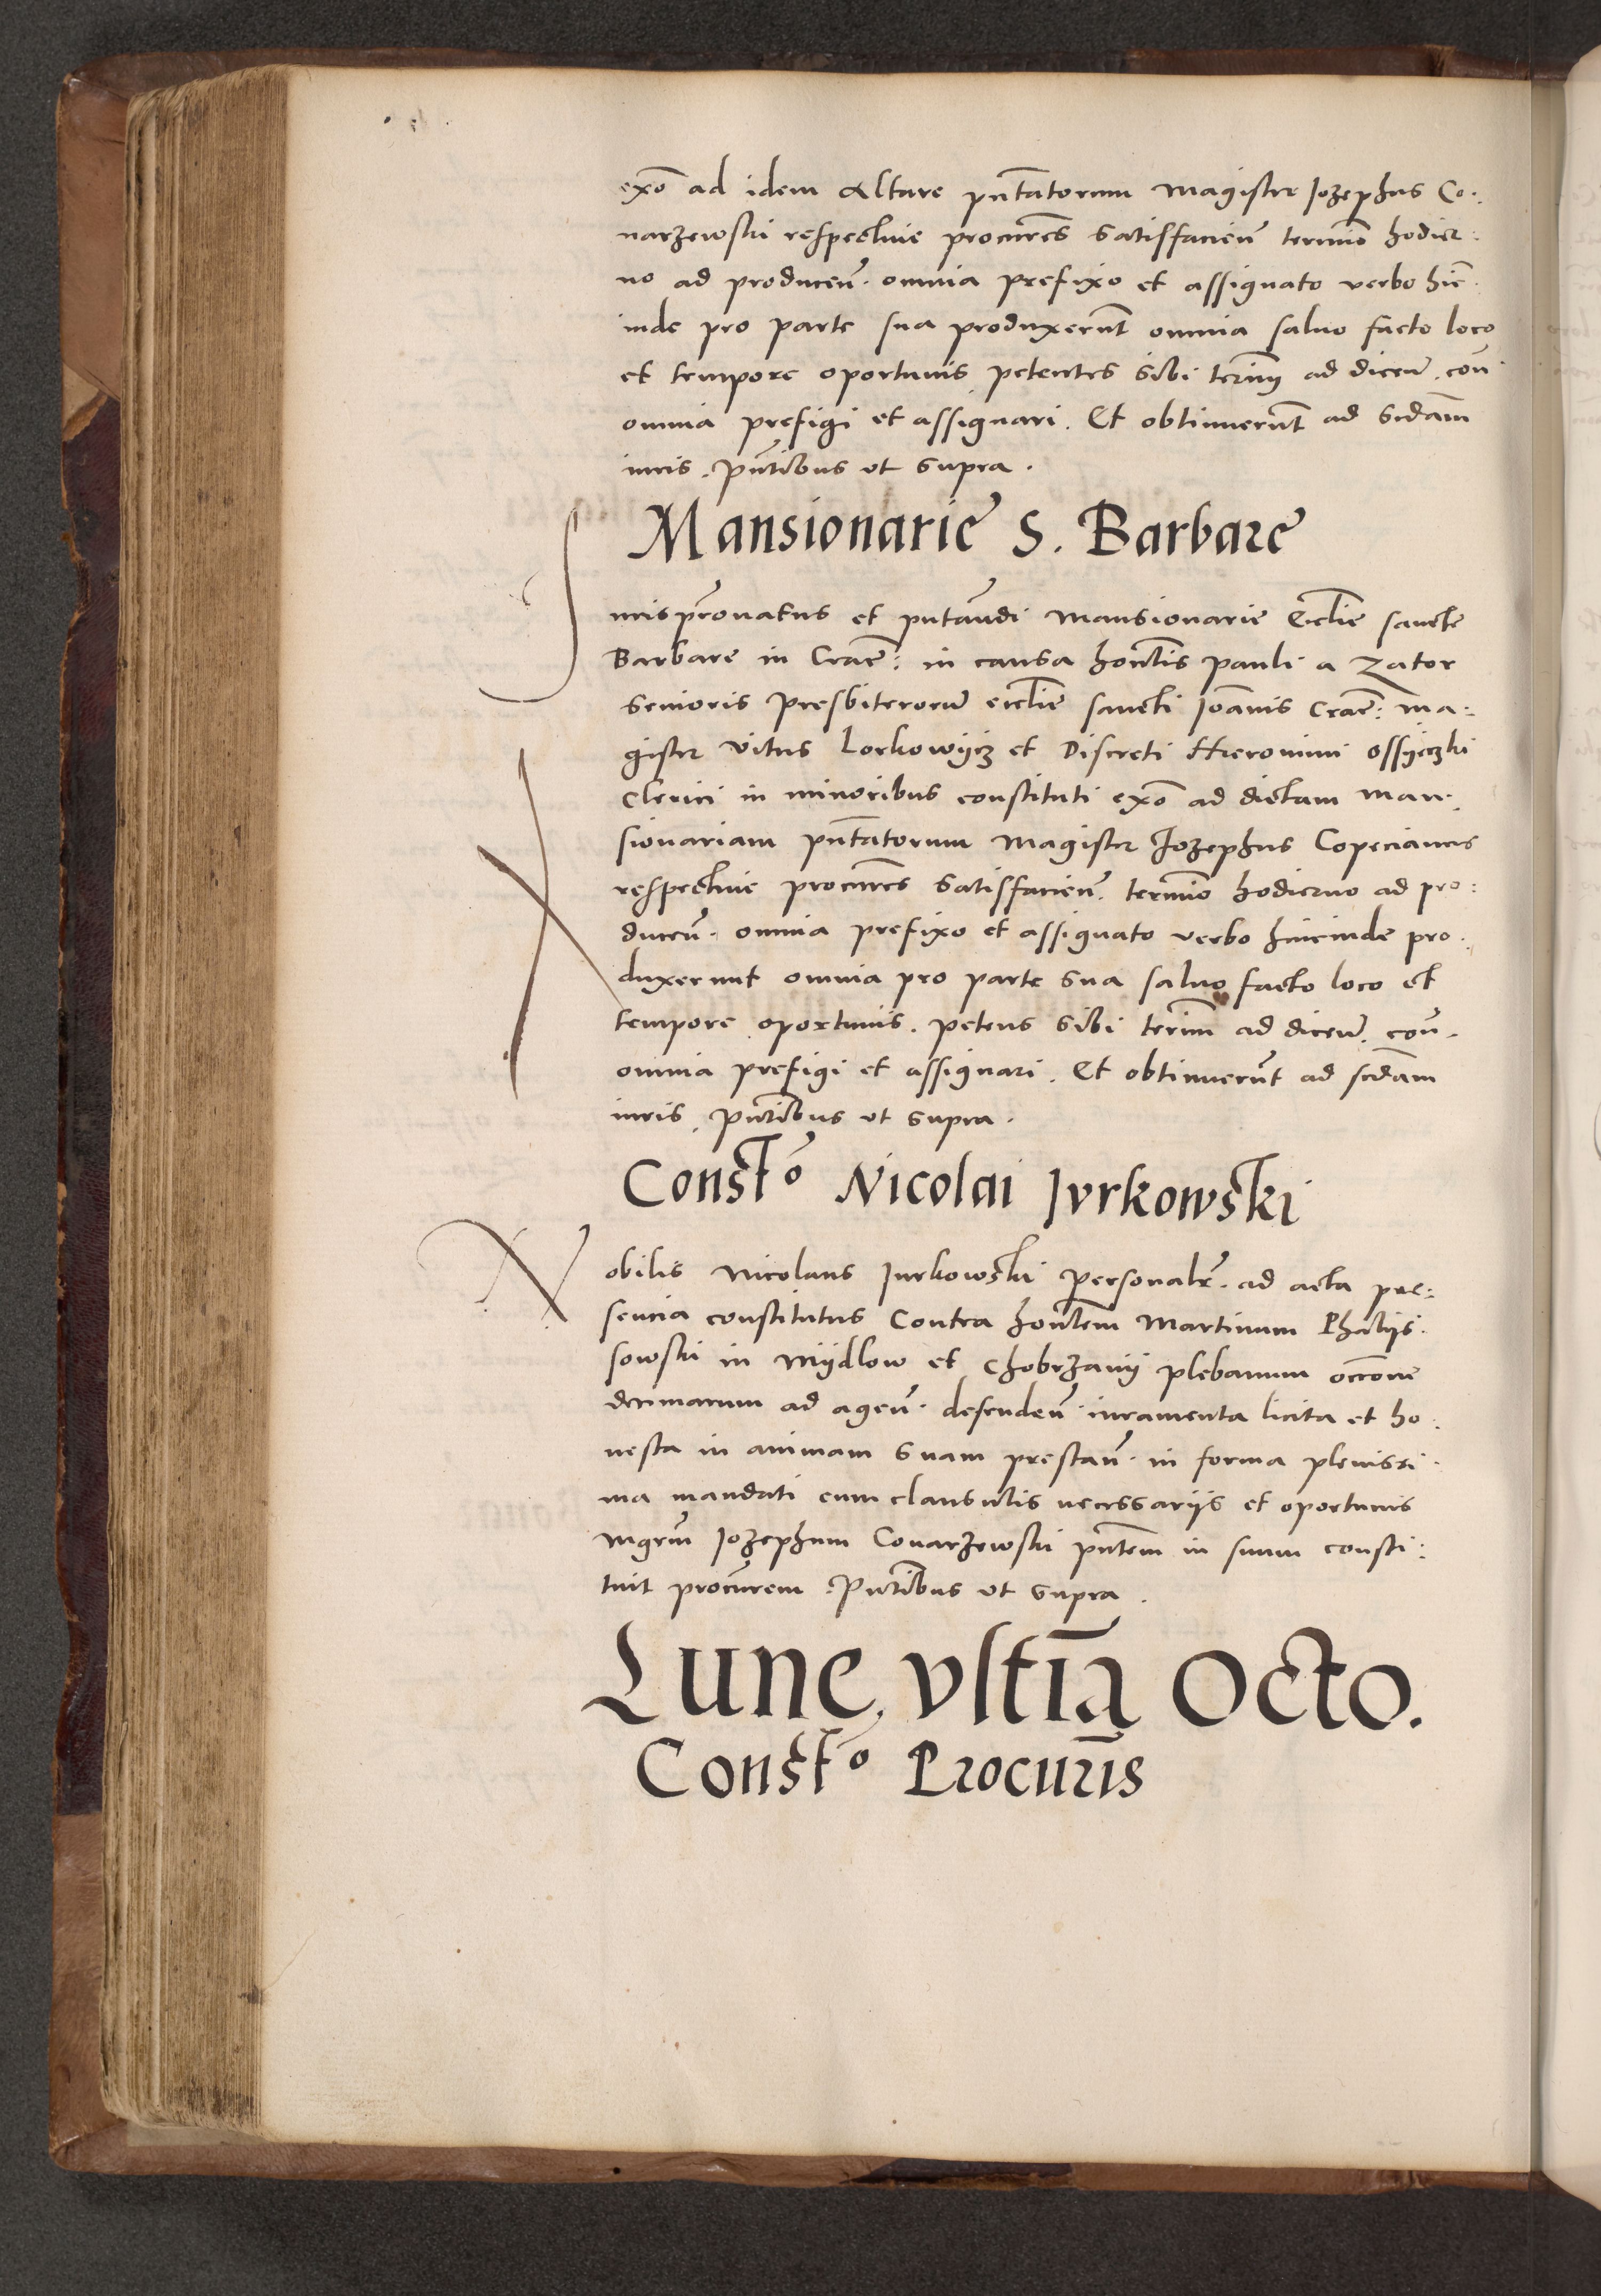 exõ ad idem Altare pñtatorum Magister Jozephus Co:
narzewski respective procur̃es satisfacieñ termio hodier:
no ad produceñ. omnia prefixo et assignato verbo hic̃
inde pro parte sua produxerũt omnia salvo facto loco
et tempore oportunis petentes sibi terim̃ ad diceñ. coñ
omnia prefigi et assignari. Et obtinuerũt ad sc̃dam
iuris. Pñtibus ut supra.
Mansionarie S. Barbare
Jurisp̃ronatus et pñtandi Mansionarie Ecc̃lie sancte
Barbare in Crac̃: in causa hon̄lis Pauli a Zator
senioris presbiterorũ ecc̃lie sancti Joãnis Crac̃: ma:
gister Vitus Lorkowÿcz et Discreti Hieronimi Ossÿeczki
Clerici in minoribus constituti exõ ad dictam Man:
sionariam pñtatorum Magister Jozephus Copecianus
respective procur̃es satisfacieñ. termio hodierno ad pro:
duceñ. omnia prefixo et assignato verbo hincinde pro.
duxerunt omnia pro parte sua salvo facto loco et
tempore oportunis. petens sibi terim̃ ad diceñ. coñ.
omnia prefigi et assignari. Et obtinuerũt ad sc̃dam
iuris. Pñtibus ut supra.
Constõ Nicolai Jvrkowski
Nobilis Nicolaus Jurkowski personalr̃. ad acta pre:
sencia constitutus Contra hon̄lem Martinum
sowski in Mÿdlow et Chobrzanÿ plebanum occ̃one
decimarum ad ageñ. defendeñ. iuramenta licita et ho:
nesta in animam suam prestañ. in forma plenissi:
ma mandati cum clausulis necessariis et oportunis
Mgrũm Jozephum Conarzewski pñtem in suum consti:
tuit procũrem. Pñtibus ut supra.
Lune, vltīa Octo.
Constõ Procur̃is